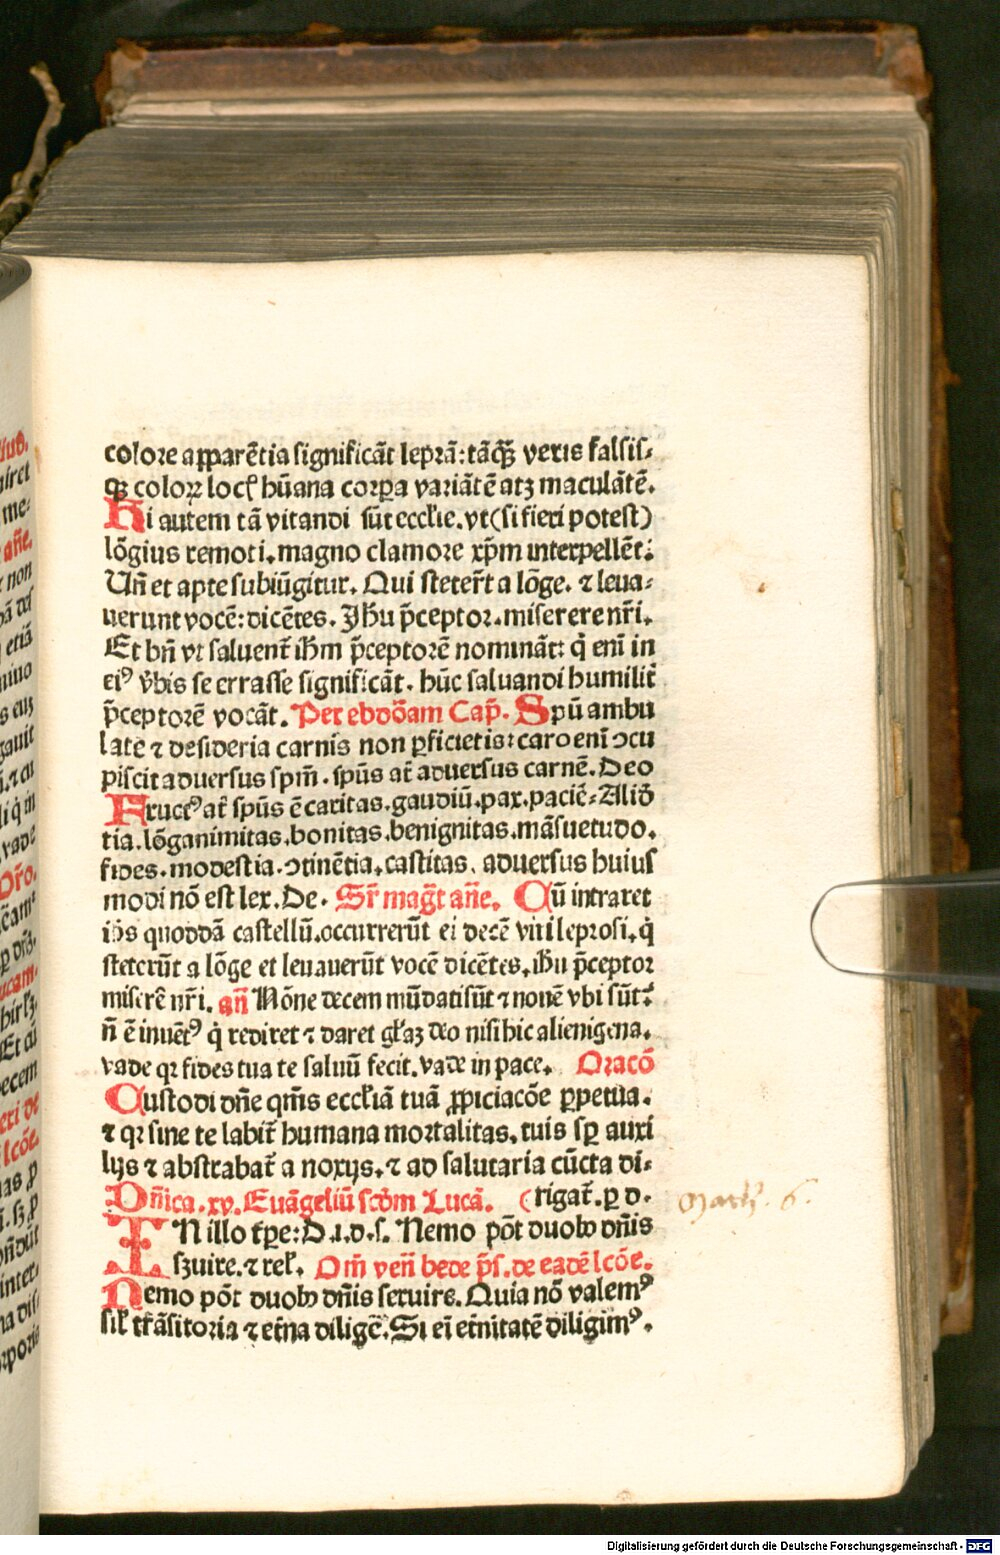 colore apparētia significāt leprā: tāqꝫ veris falsis-
qꝫ coloꝝ locꝭ hūana corpa variātē atꝫ maculātē.
Hi autem tā vitandi sūt ecclie. vt (si fieri potest)
lōgius remoti. magno clamore xp̄m interpellēt:
Un̄ et apte subiūgitur. Qui steter̄t a lōge. ⁊ leua-
uerunt vocē: dicētes. Jhu p̄ceptor. miserere nr̄i.
Et bn̄ vt saluent̄ ih̄m p̄ceptorē nomināt: q̇ eni in
eiꝰ v̄bis se errasse significāt. hūc saluandi humilit̄
p̄ceptorē vocāt. Per ebdōam Cap̄. Spū ambu
late ⁊ desideria carnis non ꝑficietis: caro enī ↄcu
piscit aduersus spm̄. spūs at̄ aduersus carnē. Deo
Fructꝰ at̄ spūs ē caritas. gaudiū. pax. paciē- Aliō
tia. lōganimitas. bonitas. benignitas. māsuetudo.
fides. modestia. ↄtinētia. castitas. aduersus huius
modi nō est lex. De. Sr̄ mag̅t an̄e. Cū intraret
ih̄s quoddā castellū. occurrerūt ei decē viri leprosi. q̇
steterūt a lōge et leuauerūt vocē dicētes. ih̄u p̄ceptor
miserē nr̄i. an̄ Nōne decem mūdati sūt ⁊ nouē vbi sūt:
n̄ ē inuētꝰ q̇ rediret ⁊ daret gl̄aꝫ deo nisi hic alienigena.
vade qꝛ fides tua te saluū fecit. vade in pace. Oracō
Custodi dn̄e qm̄s eccliā tuā ꝓpiciacōe ꝑpetua.
⁊ qꝛ sine te labit̄ humana mortalitas. tuis sꝑ auxi
lijs ⁊ abstrahat̄ a noxijs. ⁊ ad salutaria cūcta di-
Dn̄ica. xv. Euāgeliū scd̄m Lucā. (rigat̄. ꝑ d.
IN illo tꝑe: D. i. d. s. Nemo pōt duobꝫ dn̄is Math. 6.
sꝫuire. ⁊ rel̄. Om̄ ven̄ bede p̄s. de eadē lcōe.
Nemo pōt duobꝫ dn̄is seruire. Quia nō valemꝰ
sil̄ trāsitoria ⁊ et̄na diligē̄. Si ei et̄nitatē diligimꝰ.
Digitalisierung gefördert durch die Deutsche Forschungsgemeinschaft - DFG